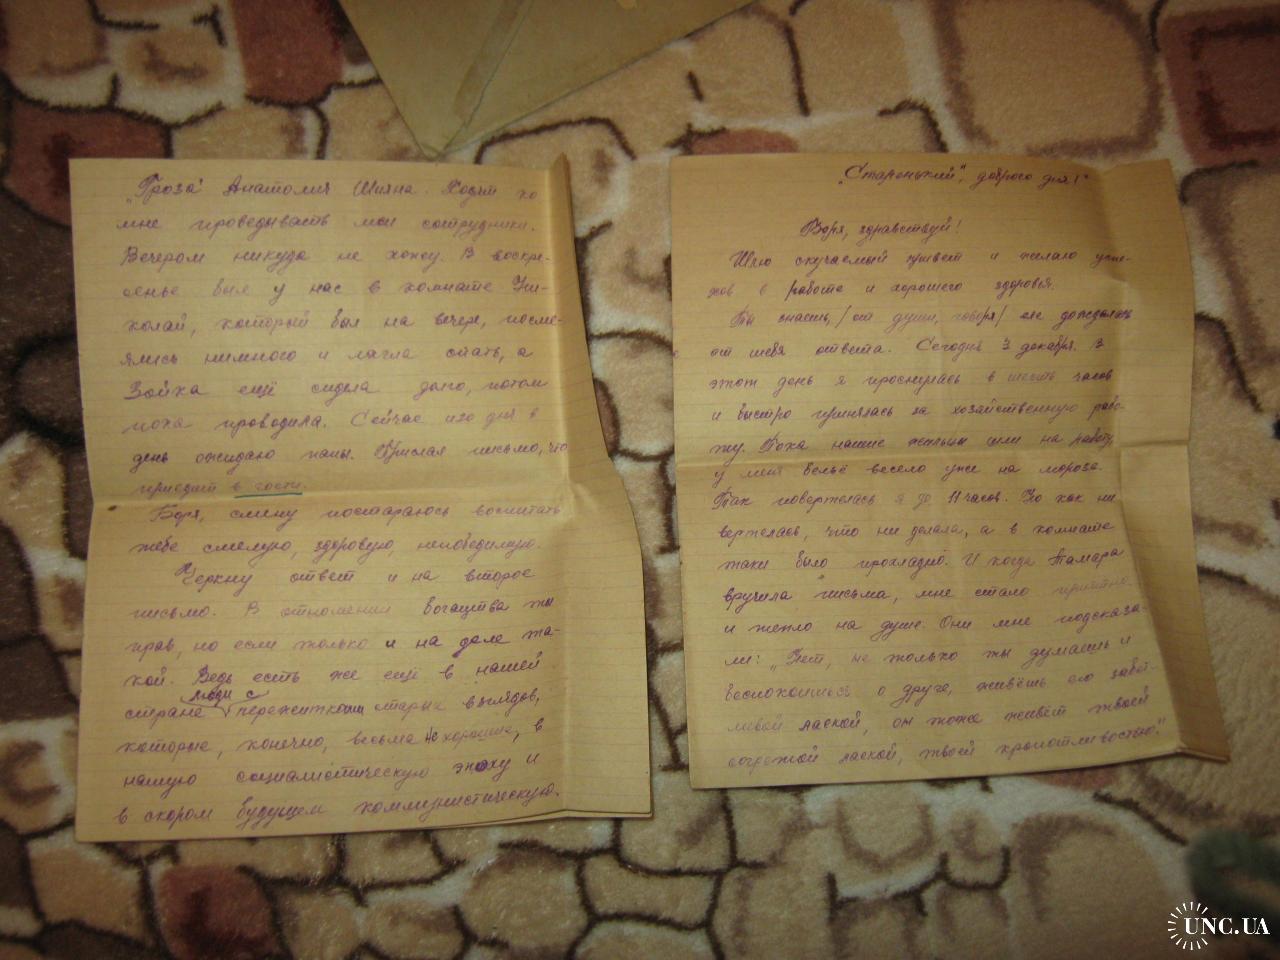 „Гроза" Анатолия Шияна. Ходят ко
мне проведывать мои сотрудники.
Вечером никуда не хожу. В воскре-
сенье был у нас в комнате Ни-
колай, который был на вечере, посме-
ялись немного и легла спать, а
Зойка ещё сидела долго, потом
пока проводила. Сейчас изо дня в
день ожидаю папы. Прислал письмо, что
приедет в гости.
Боря, смену постараюсь воспитать
тебе смелую, здоровую, непобедимую.
Черкну ответ и на второе
письмо. В отношении богатства ты
прав, но если только и на деле та-
кой. Ведь есть же ещё в нашей
люди с
стране пережитками старых взглядов,
которые, конечно, весьма не хорошие, в
нашу социалистическую эпоху и
в скором будущем коммунистическую.
„Старенький", доброго дня!
Боря, здравствуй!
Шлю скучаемый привет и желаю успе-
хов в работе и хорошего здоровья.
Ты знаешь, /от души, говоря/ не дождалась
от тебя ответа. Сегодня 3 декабря. В
этот день я проснулась в шесть часов
и быстро принялась за хозяйственную рабо-
ту. Пока наши жильцы шли на работу,
у меня бельё весело уже на морозе.
Так повертелась я до 11 часов. Но как ни
вертелась, что ни делала, а в комнате
таки было прохладно. И когда Тамара
вручила письма, мне стало приятно
и тепло на душе. Они мне подсказа-
ли: „Нет, не только ты думаешь и
беспокоишься о друге, живёшь его забот-
ливой лаской, он тоже живёт твоей
согретой лаской, твоей кропотливостью."
UNC.UA